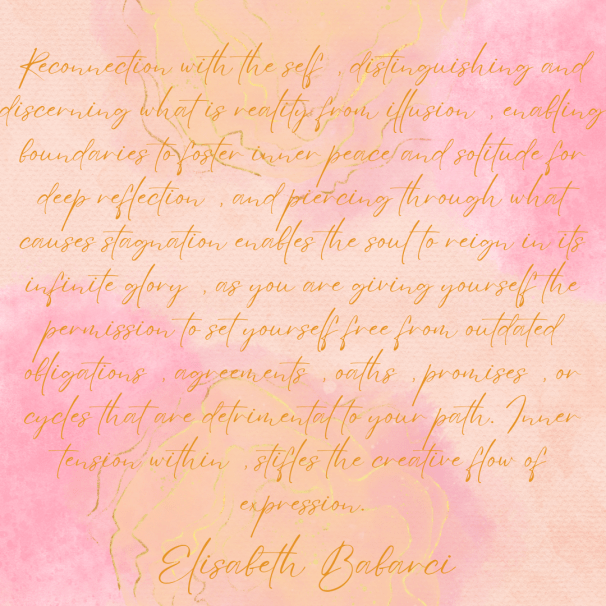 Reconnection with the self , distinguishing and
discerning what is reality from illusion , enabling
boundaries to foster inner peace and solitude for
deep reflection , and piercing through what
causes stagnation enables the soul to reign in its
infinite glory , as you are giving yourself the
permission to set yourself free from outdated
obligations , agreements , oaths , promises , or
cycles that are detrimental to your path. Inner
tension within , stifles the creative flow of
expression.
Elisabeth Babarci